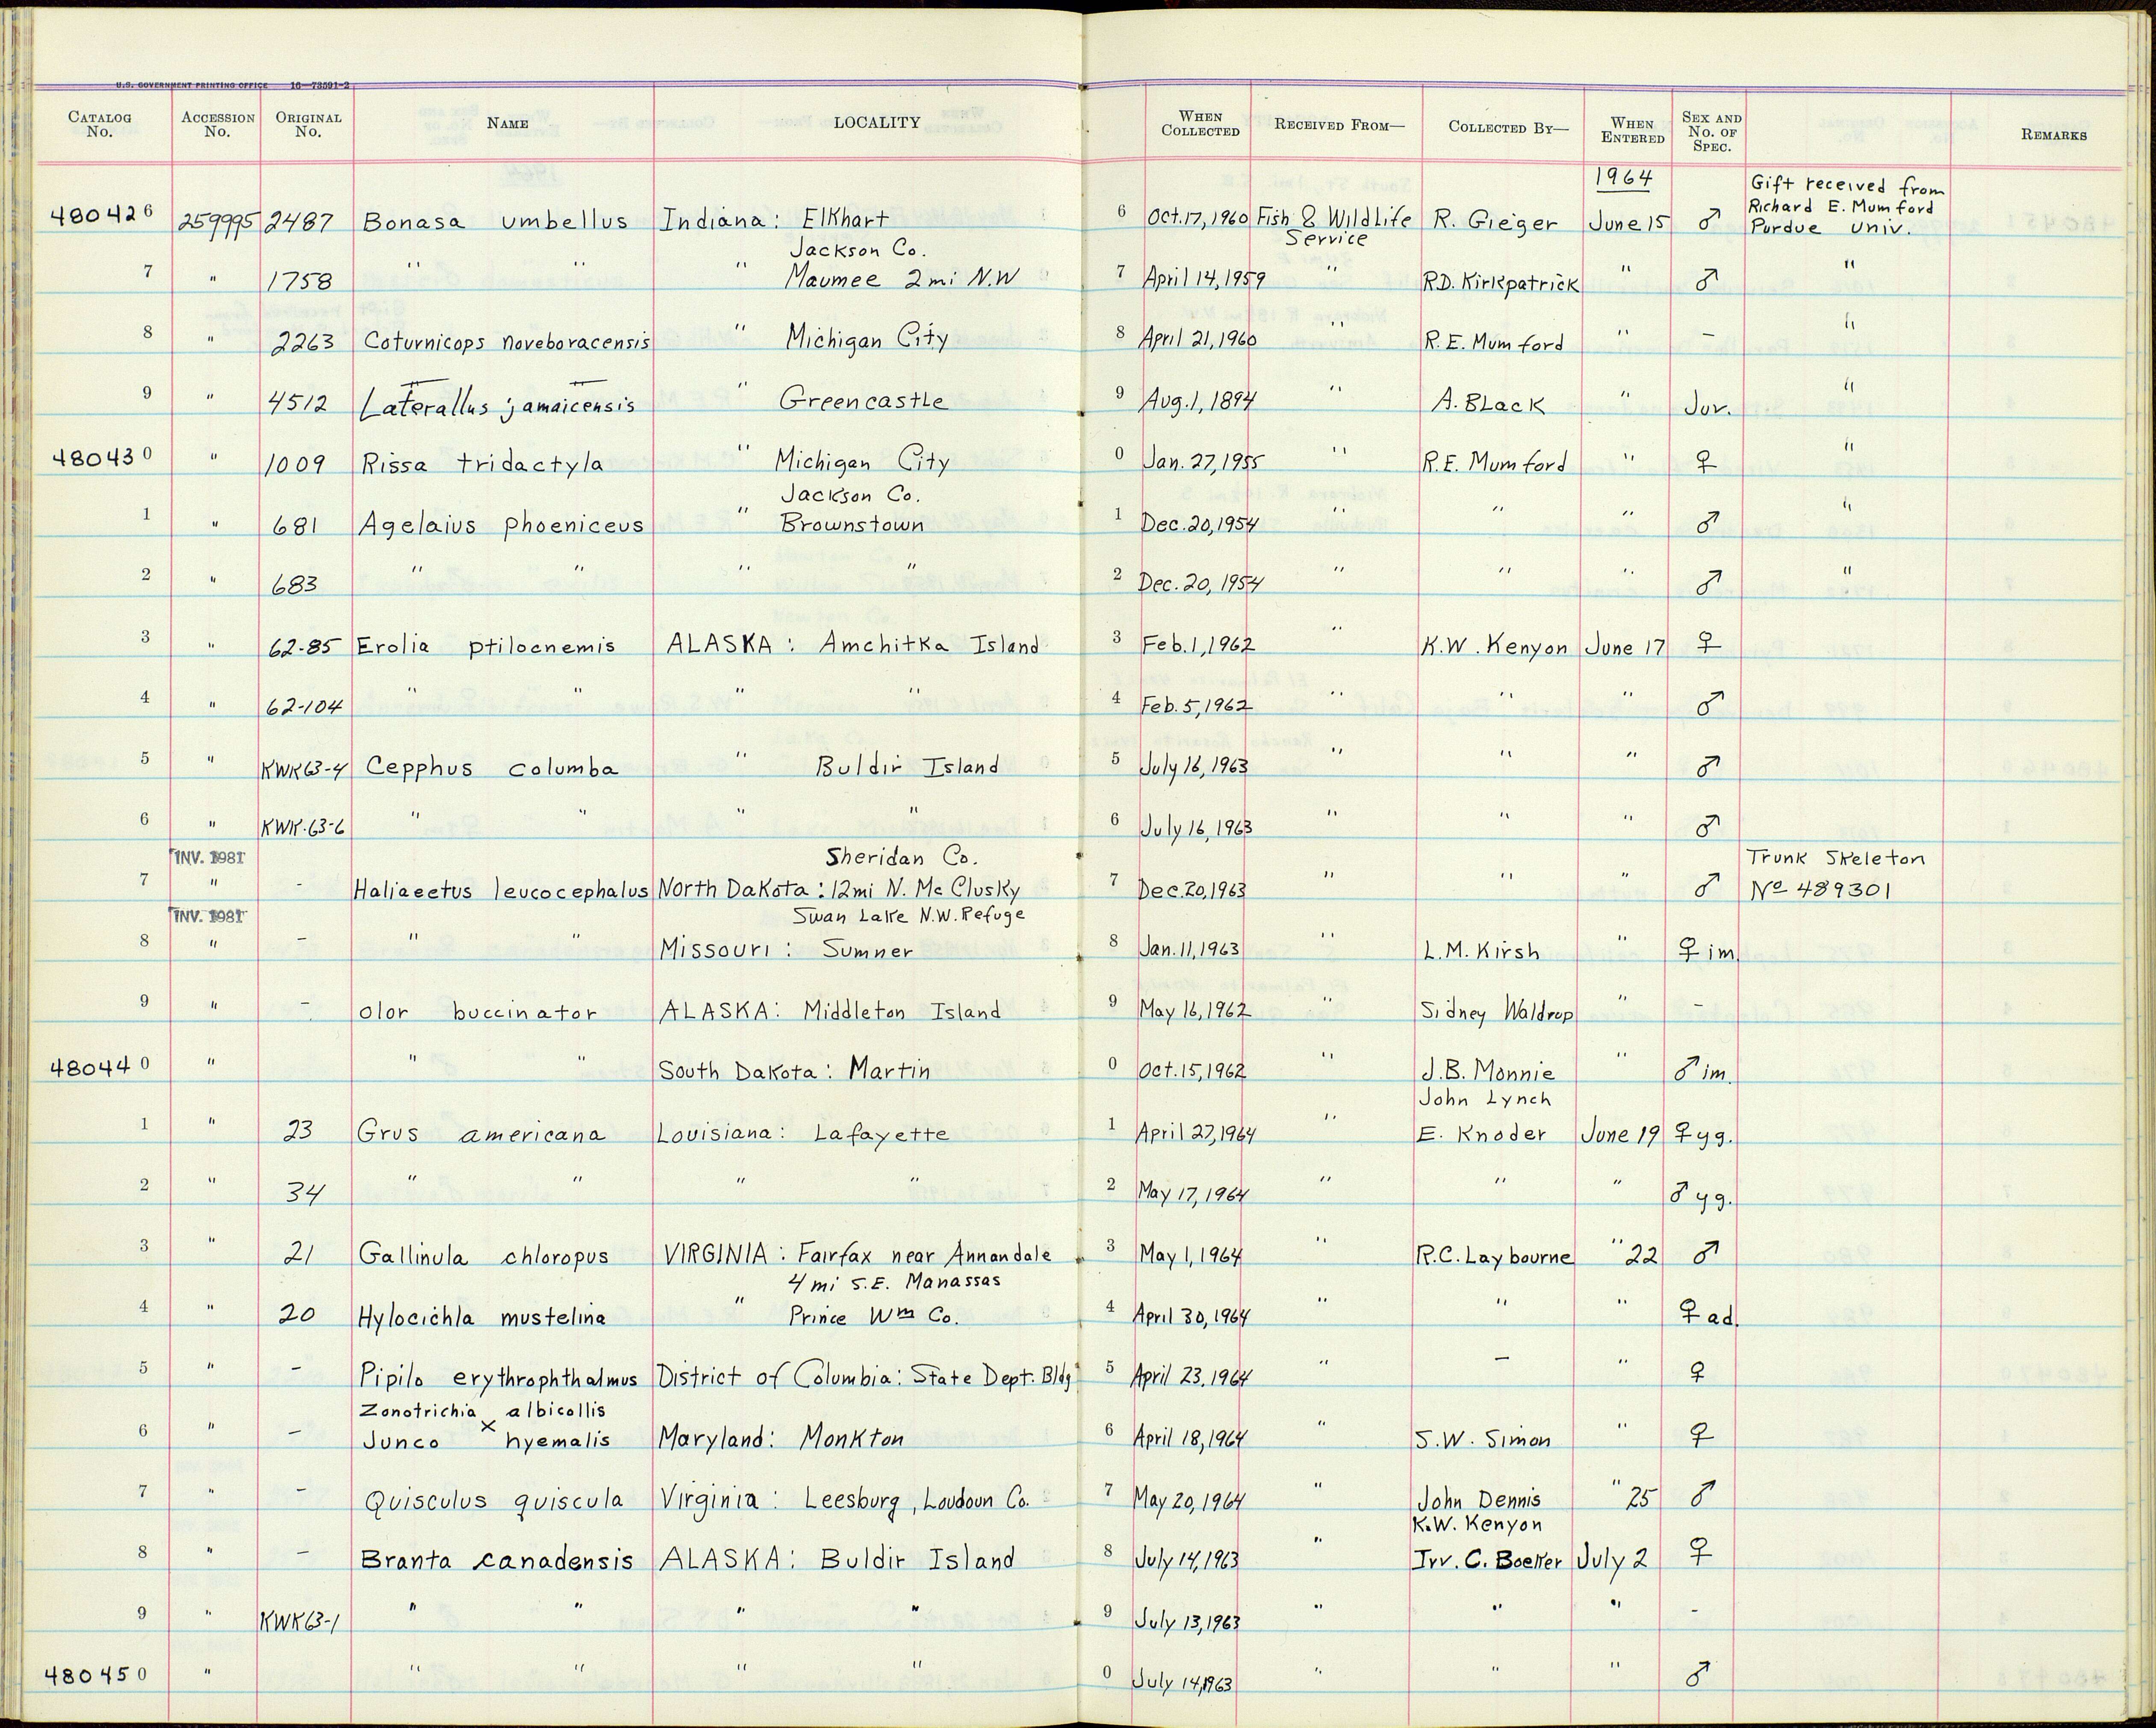 U.S. GOVERNMENT PRINTING OFFICE 16—73591-2
CATALOG No. ACCESSION No. ORIGINAL No. NAME LOCALITY WHEN COLLECTED RECEIVED FROM— COLLECTED BY— WHEN ENTERED SEX AND No. OF SPEC. REMARKS
1964 Gift received from
480426 259995 2487 Bonasa umbellus Indiana: Elkhart 6 Oct.17,1960 Fish & Wildlife Service R. Gieger June 15 ♂ Richard E. Mumford Purdue Univ.
Jackson Co.
7 " 1758 " " " Maumee 2mi N.W 7 April 14,1959 " R.D. Kirkpatrick " ♂ "
8 " 2263 Coturnicops noveboracensis " Michigan City 8 April 21,1960 " R.E. Mumford " – "
9 " 4512 Laterallus jamaicensis " Greencastle 9 Aug.1,1894 " A. Black " Juv. "
480430 " 1009 Rissa tridactyla " Michigan City 0 Jan.27,1955 " R.E. Mumford " ♀ "
Jackson Co.
1 " 681 Agelaius phoeniceus " Brownstown 1 Dec.20,1954 " " " ♂ "
2 " 683 " " " " 2 Dec.20,1954 " " " ♂ "
3 " 62-85 Erolia ptilocnemis ALASKA: Amchitka Island 3 Feb.1,1962 " K.W. Kenyon June 17 ♀
4 " 62-104 " " " " 4 Feb.5,1962 " " " ♂
5 " KWK63-4 Cepphus columba " Buldir Island 5 July 16,1963 " " " ♂
6 " KWK-63-6 " " " " 6 July 16,1963 " " " ♂
INV. 1981 Sheridan Co. Trunk Skeleton
7 " – Haliaeetus leucocephalus North Dakota: 12mi N. McClusky 7 Dec.20,1963 " " " ♂ No 489301
INV. 1981 Swan Lake N.W. Refuge
8 " – " " Missouri: Sumner 8 Jan.11,1963 " L.M. Kirsh " ♀ im.
9 " – olor buccinator ALASKA: Middleton Island 9 May 16,1962 " Sidney Waldrup " –
480440 " " " South Dakota: Martin 0 Oct.15,1962 " J.B. Monnie " ♂ im.
John Lynch
1 " 23 Grus americana Louisiana: Lafayette 1 April 27,1964 " E. Knoder June 19 ♀ yg.
2 " 34 " " " " 2 May 17,1964 " " " ♂ yg.
3 " 21 Gallinula chloropus VIRGINIA: Fairfax near Annandale 3 May 1,1964 " R.C. Laybourne " 22 ♂
4 mi S.E. Manassas
4 " 20 Hylocichla mustelina " Prince Wm Co. 4 April 30,1964 " " " ♀ ad.
5 " – Pipilo erythrophthalmus District of Columbia: State Dept. Bldg 5 April 23,1964 " – " ♀
Zonotrichia albicollis
6 " – Junco x hyemalis Maryland: Monkton 6 April 18,1964 " S.W. Simon " ♀
7 " – Quisculus quiscula Virginia: Leesburg, Loudoun Co. 7 May 20,1964 " John Dennis " 25 ♂
K.W. Kenyon
8 " – Branta canadensis ALASKA: Buldir Island 8 July 14,1963 " Irv. C. Boeker July 2 ♀
9 " KWK63-1 " " " " 9 July 13,1963 " " " –
480450 " " " " " 0 July 14,1963 " " " ♂